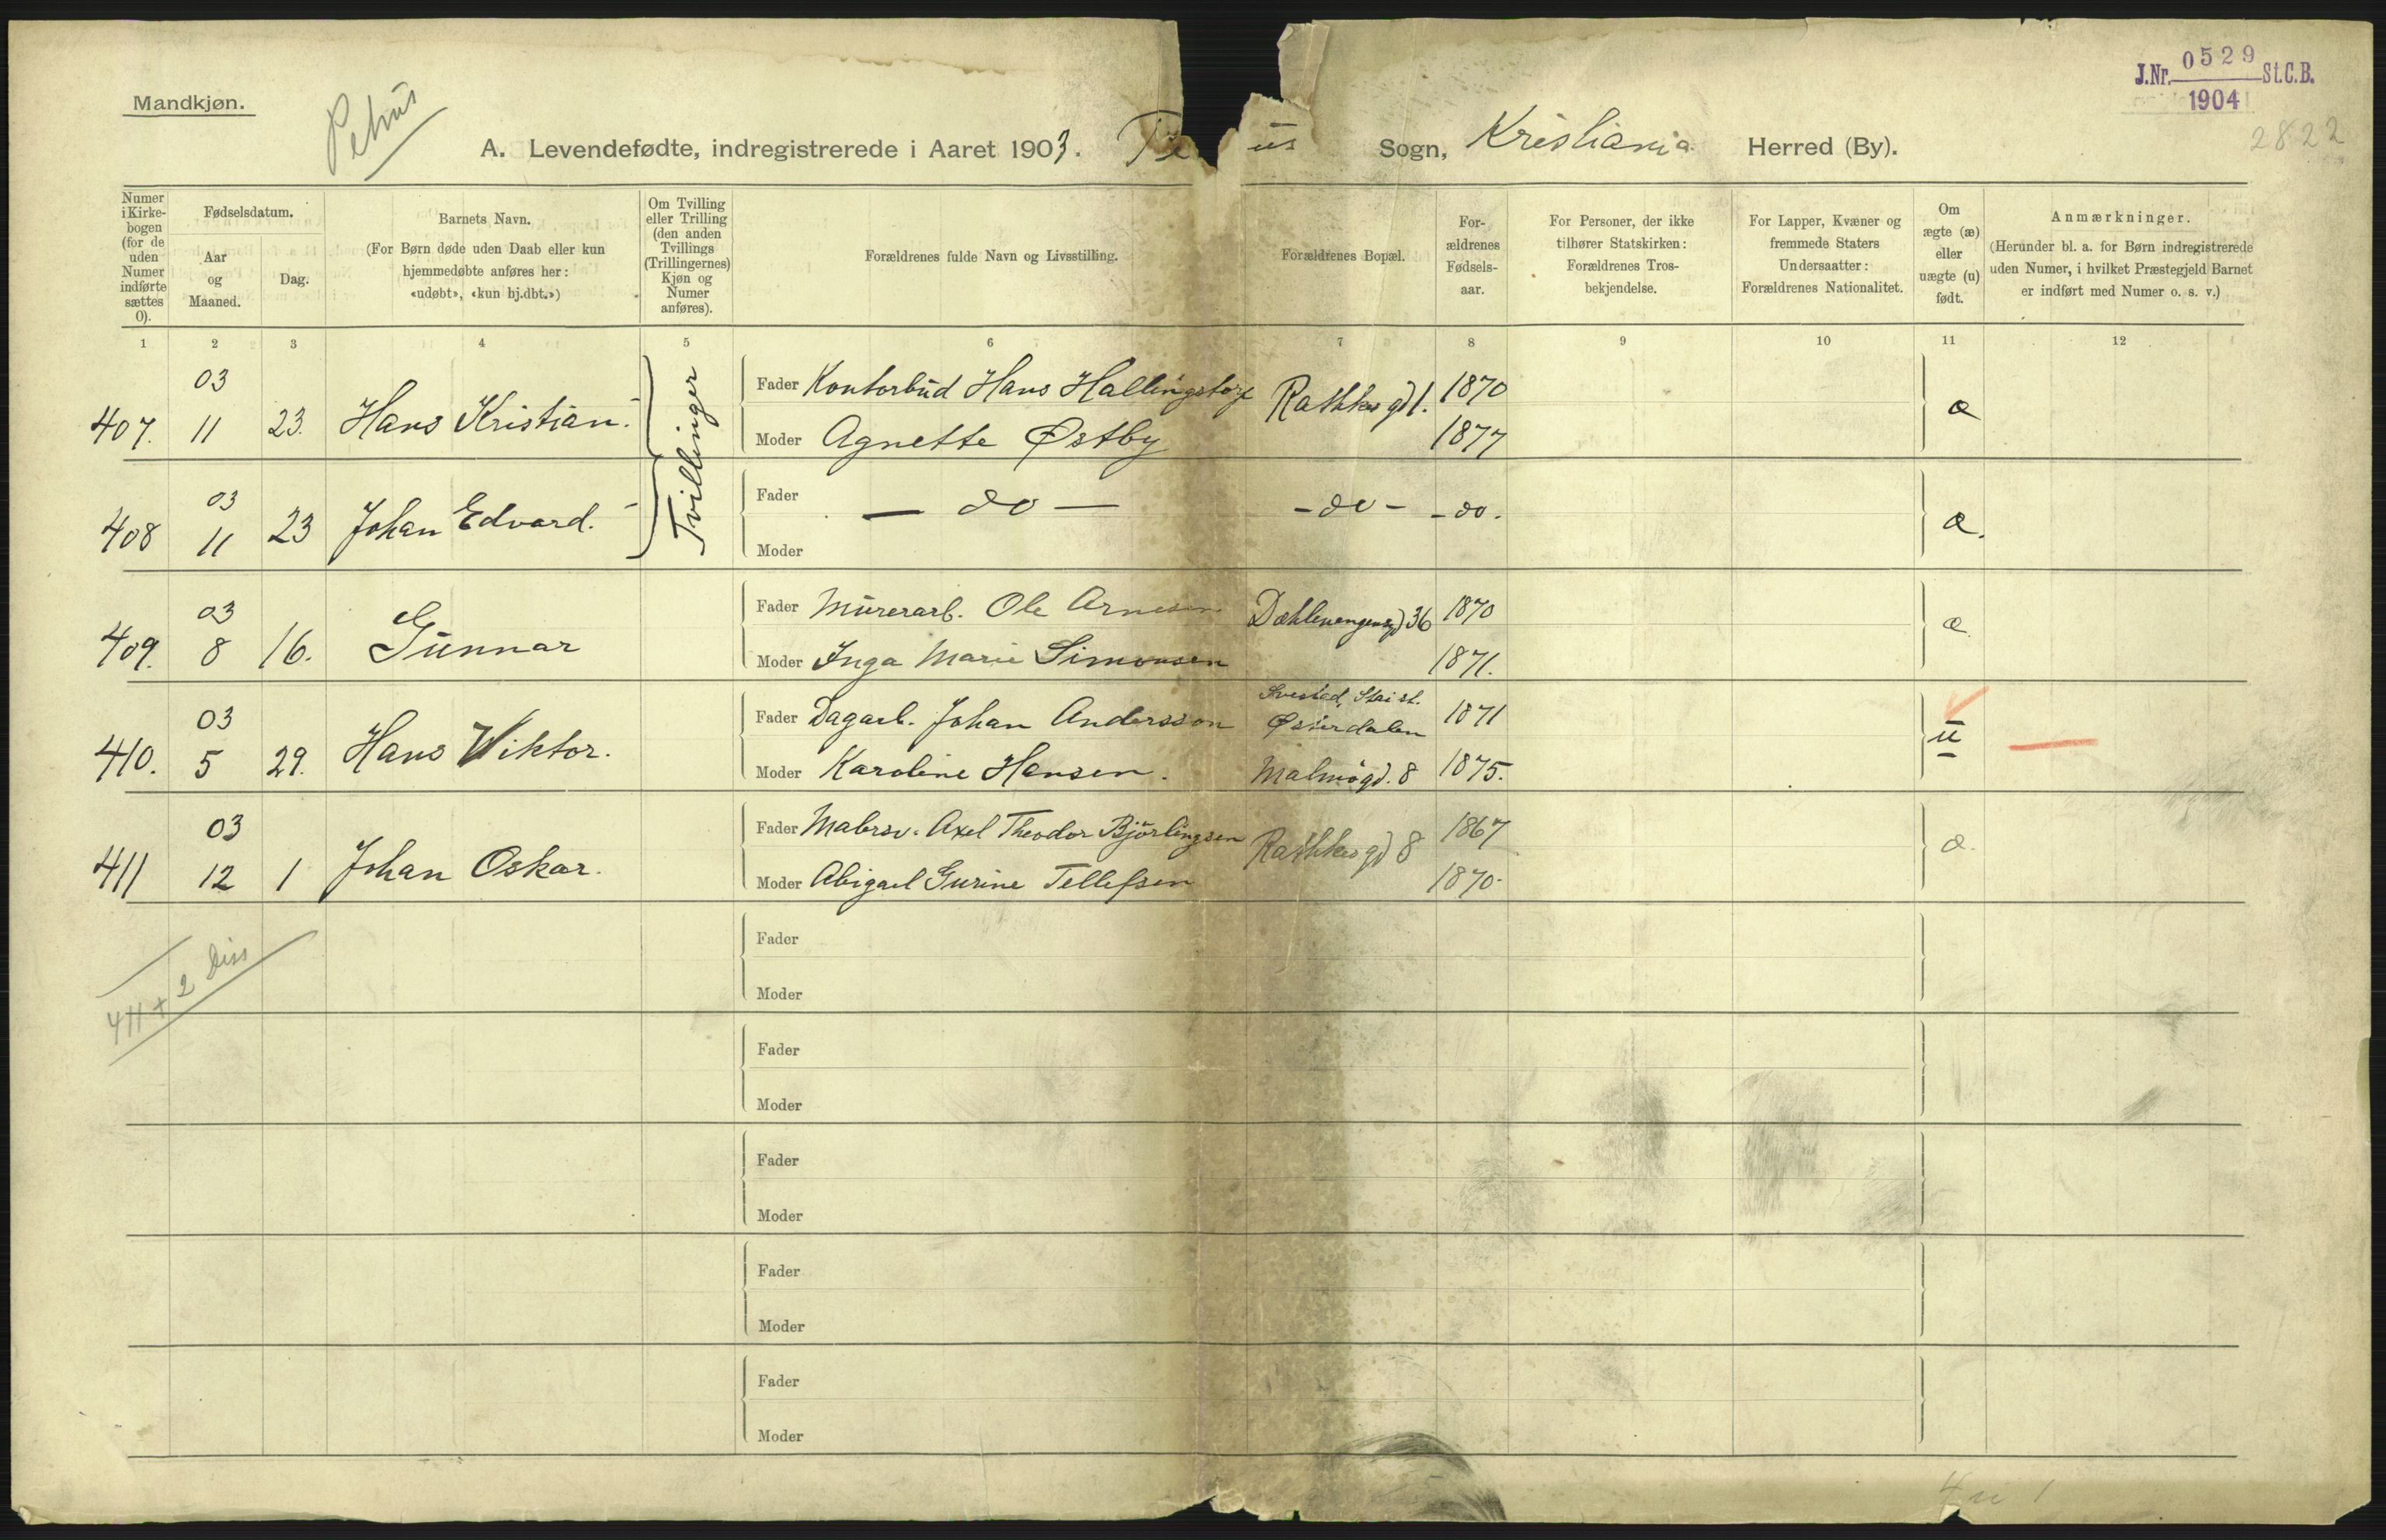 Mandkjøn.
Petrus
J.Nr. 0529 St.C.B.
1904
2822
A. Levendefødte, indregistrerede i Aaret 1903. Pe us Sogn, Kristiania Herred (By).
Numer i Kirkebogen (for de uden Numer indførte sættes 0).
Fødselsdatum.
Aar og Maaned.
Dag.
Barnets Navn.
(For Børn døde uden Daab eller kun
hjemmedøbte anføres her:
«udøbt», «kun hj.dbt.»)
Om Tvilling
eller Trilling
(den anden
Tvillings
(Trillingernes)
Kjøn og
Numer
anføres).
Forældrenes fulde Navn og Livsstilling.
Forældrenes Bopæl.
For-
ældrenes
Fødsels-
aar.
For Personer, der ikke
tilhører Statskirken:
Forældrenes Tros-
bekjendelse.
For Lapper, Kvæner og
fremmede Staters
Undersaatter:
Forældrenes Nationalitet.
Om
ægte (æ)
eller
uægte (u)
født.
Anmærkninger.
(Herunder bl. a. for Børn indregistrerede
uden Numer, i hvilket Præstegjeld Barnet
er indført med Numer o. s. v.)
1 2 3 4 5 6 7 8 9 10 11 12
407. 03 11 23. Hans Kristian. Tvillinger
Fader Kontorbud Hans Hallingstorp Rathkes gd 1. 1870 æ
Moder Agnette Østby 1877
408 03 11 23 Johan Edvard.
Fader — do — - do - - do. æ.
Moder
409. 03 8 16. Gunnar
Fader Murerarb. Ole Arnesen Dæhlenengensgd 36 1870 æ.
Moder Inga Marie Simonsen 1871.
410. 03 5 29. Hans Viktor.
Fader Dagarb. Johan Andersson Stai st. Østerdalen 1871 u
Moder Karoline Hansen. Malmøgd. 8 1875.
411 03 12 1 Johan Oskar.
Fader Malersv. Axel Theodor Björlingsen Rathkes gd 8 1867 æ.
Moder Abigael Gurine Tellefsen 1870.
411 + 2 Diss
Fader
Moder
Fader
Moder
Fader
Moder
Fader
Moder
Fader
Moder
4 u 1